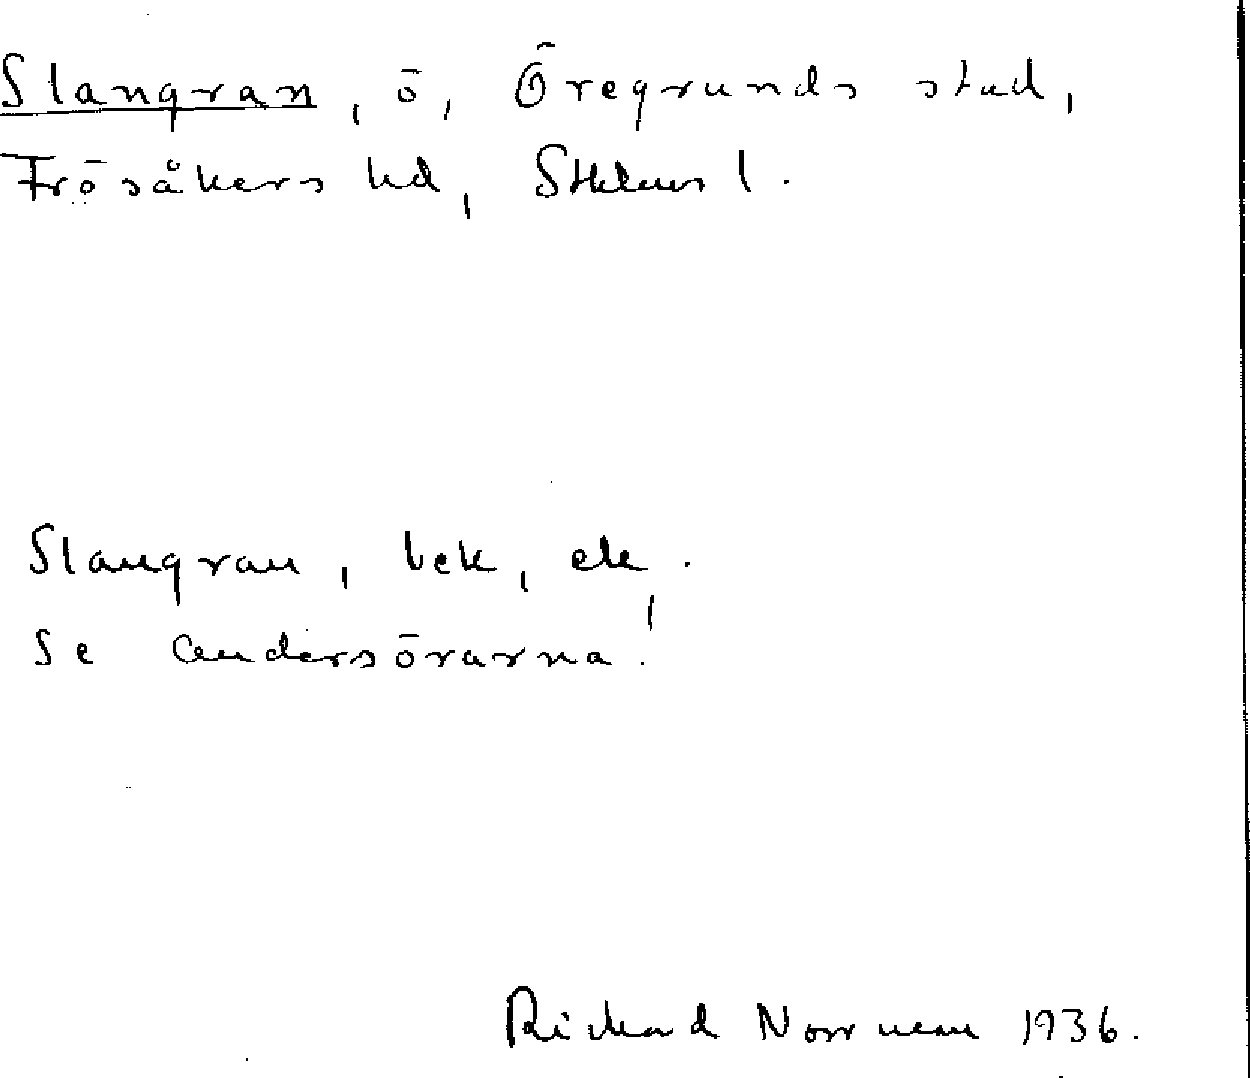 Slanggran, ö, Öregrunds stad,
Frösåkers hd, Sthlms l.
Slangran, bek, ek.
Se Andersörarna!
Richard Norrman 1936.